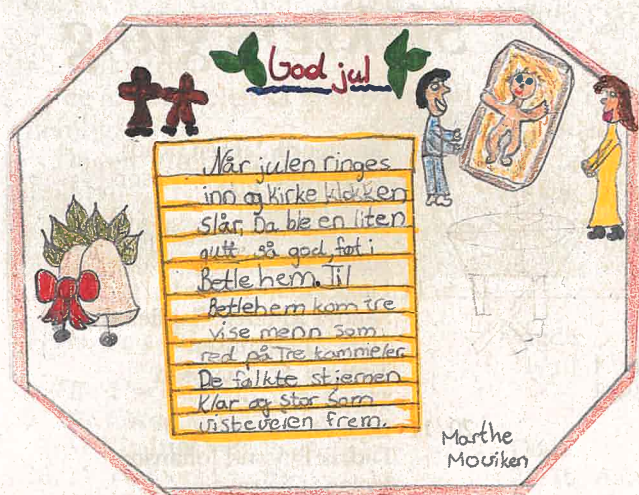 God jul
Når julen ringes
inn og kirke klokken
slår, Da ble en liten
gutt så god, føt i
Betlehem. Til
Betlehem kom tre
vise menn som
red på Tre kammeler
De følkte stjernen
Klar og stor Som
visteveien frem.
Marthe
Moviken